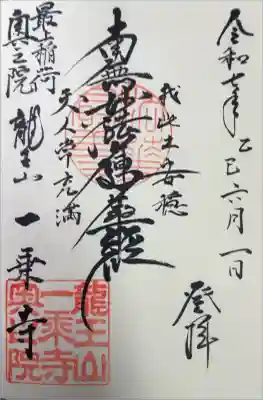 令和七年乙巳六月一日
登陣
我此土安穏
南無妙法蓮華経
天人常充満
最上稲荷
奥之院 龍王山 一乗寺
龍王山
一乗寺
奥之院